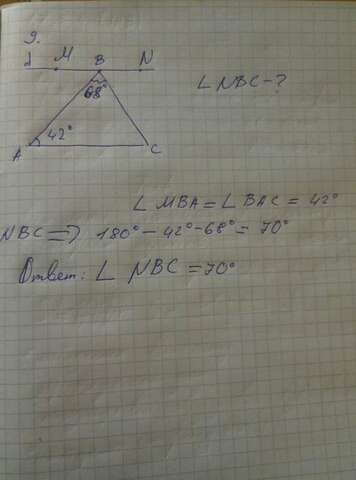 9.
d M B N
68°
∠ NBC - ?
42°
A C
∠ MBA = ∠ BAC = 42°
NBC ⇒ 180° - 42° - 68° = 70°
Ответ: ∠ NBC = 70°